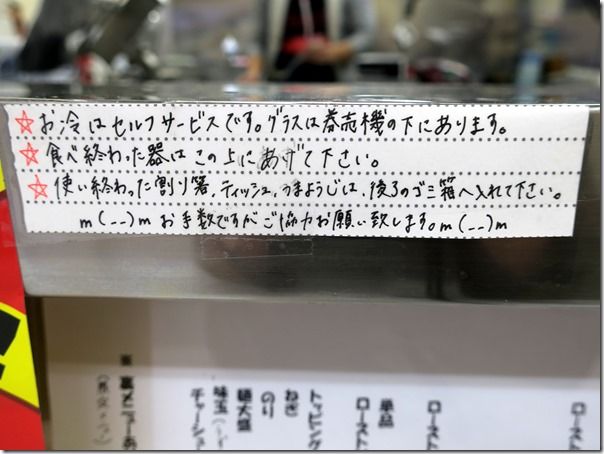 ☆お冷はセルフサービスです。グラスは券売機の下にあります。
☆食べ終わった器はこの上にあげて下さい。
☆使い終わった割り箸、ティッシュ、つまようじは、後ろのゴミ箱へ入れて下さい。
m(__)mお手数ですがご協力お願い致します。m(__)m
ロースト
ロースト
単品
ロースト
トッピング
ねぎ
のり
麺大盛
味玉
チャーシュー
※裏メニューあ